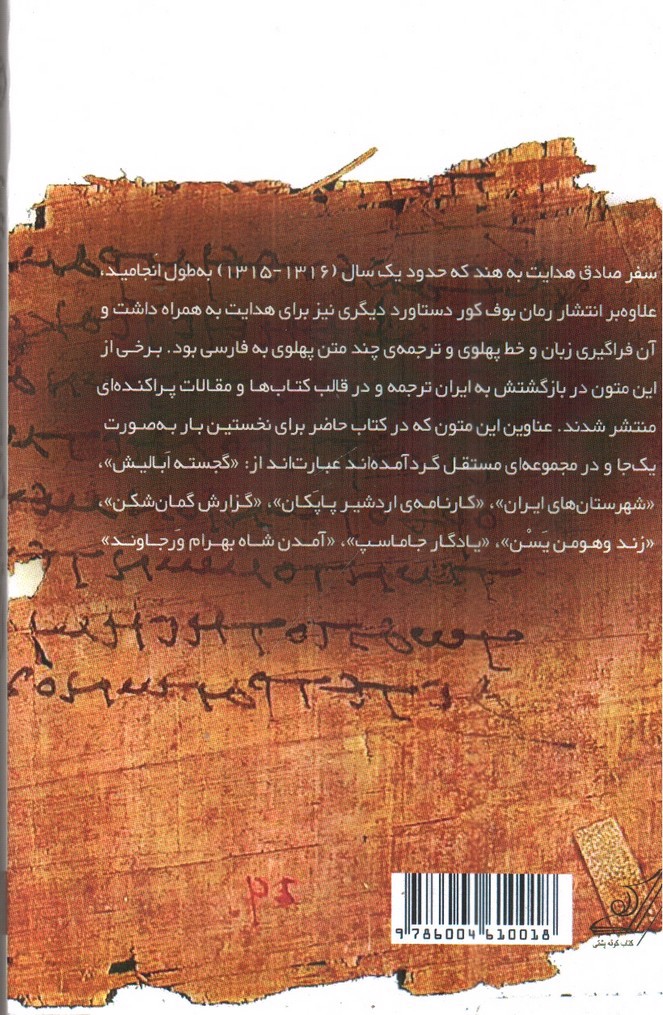 سفر صادق هدایت به هند که حدود یک سال (۱۳۱۶-۱۳۱۵) به‌طول انجامید،
علاوه‌بر انتشار رمان بوف کور دستاورد دیگری نیز برای هدایت به همراه داشت و
آن فراگیری زبان و خط پهلوی و ترجمه‌ی چند متن پهلوی به فارسی بود. برخی از
این متون در بازگشتش به ایران ترجمه و در قالب کتاب‌ها و مقالات پراکنده‌ای
منتشر شدند. عناوین این متون که در کتاب حاضر برای نخستین بار به‌صورت
یک‌جا و در مجموعه‌ای مستقل گردآمده‌اند عبارت‌اند از: «گجسته اَبالیش»،
«شهرستان‌های ایران»، «کارنامه‌ی اردشیر پاپَکان»، «گزارش گمان‌شکن»،
«زند وهومن یَسْن»، «یادگار جاماسپ»، «آمدن شاه بهرام وَرجاوند»
9 786004 610018
کتاب کوله پشتی